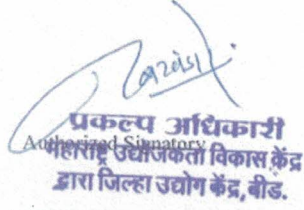 प्रकल्प अधिकारी
Authorized Signatory
महाराष्ट्र उद्योजकता विकास केंद्र
द्वारा जिल्हा उद्योग केंद्र, बीड.